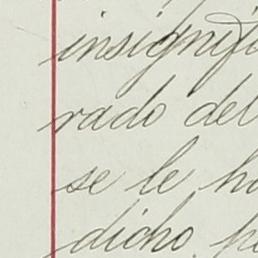 insignifi
rado del
se le ha
dicho, p